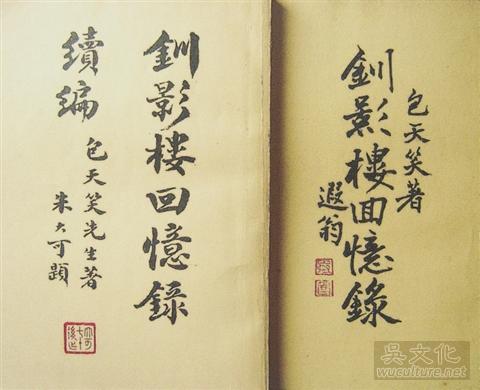 釧影樓回憶錄
續編
包天笑先生著
朱大可題
包天笑著
釧影樓回憶錄
遐翁
吳文化
www.wuculture.net